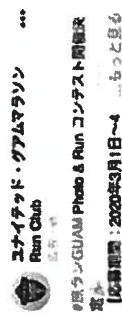 ユナイテッド・グアムマラソン
Run Club
#旅ランGUAM Photo & Run コンテスト開催決
定
【応募期間：2020年3月1日〜4 ...もっと見る